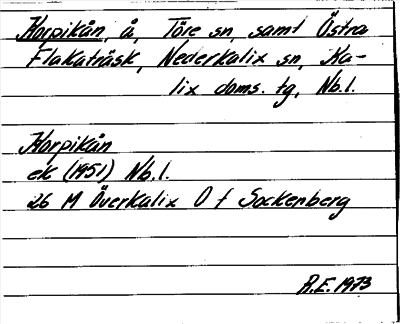 Korpikån, å, Töre sn, samt Östra
Flakaträsk, Nederkalix sn, Ka-
lix doms. tg, Nb.l.
Korpikån
ek (1951) Nb.l.
26 M Överkalix O f Sockenberg
R.E. 1973